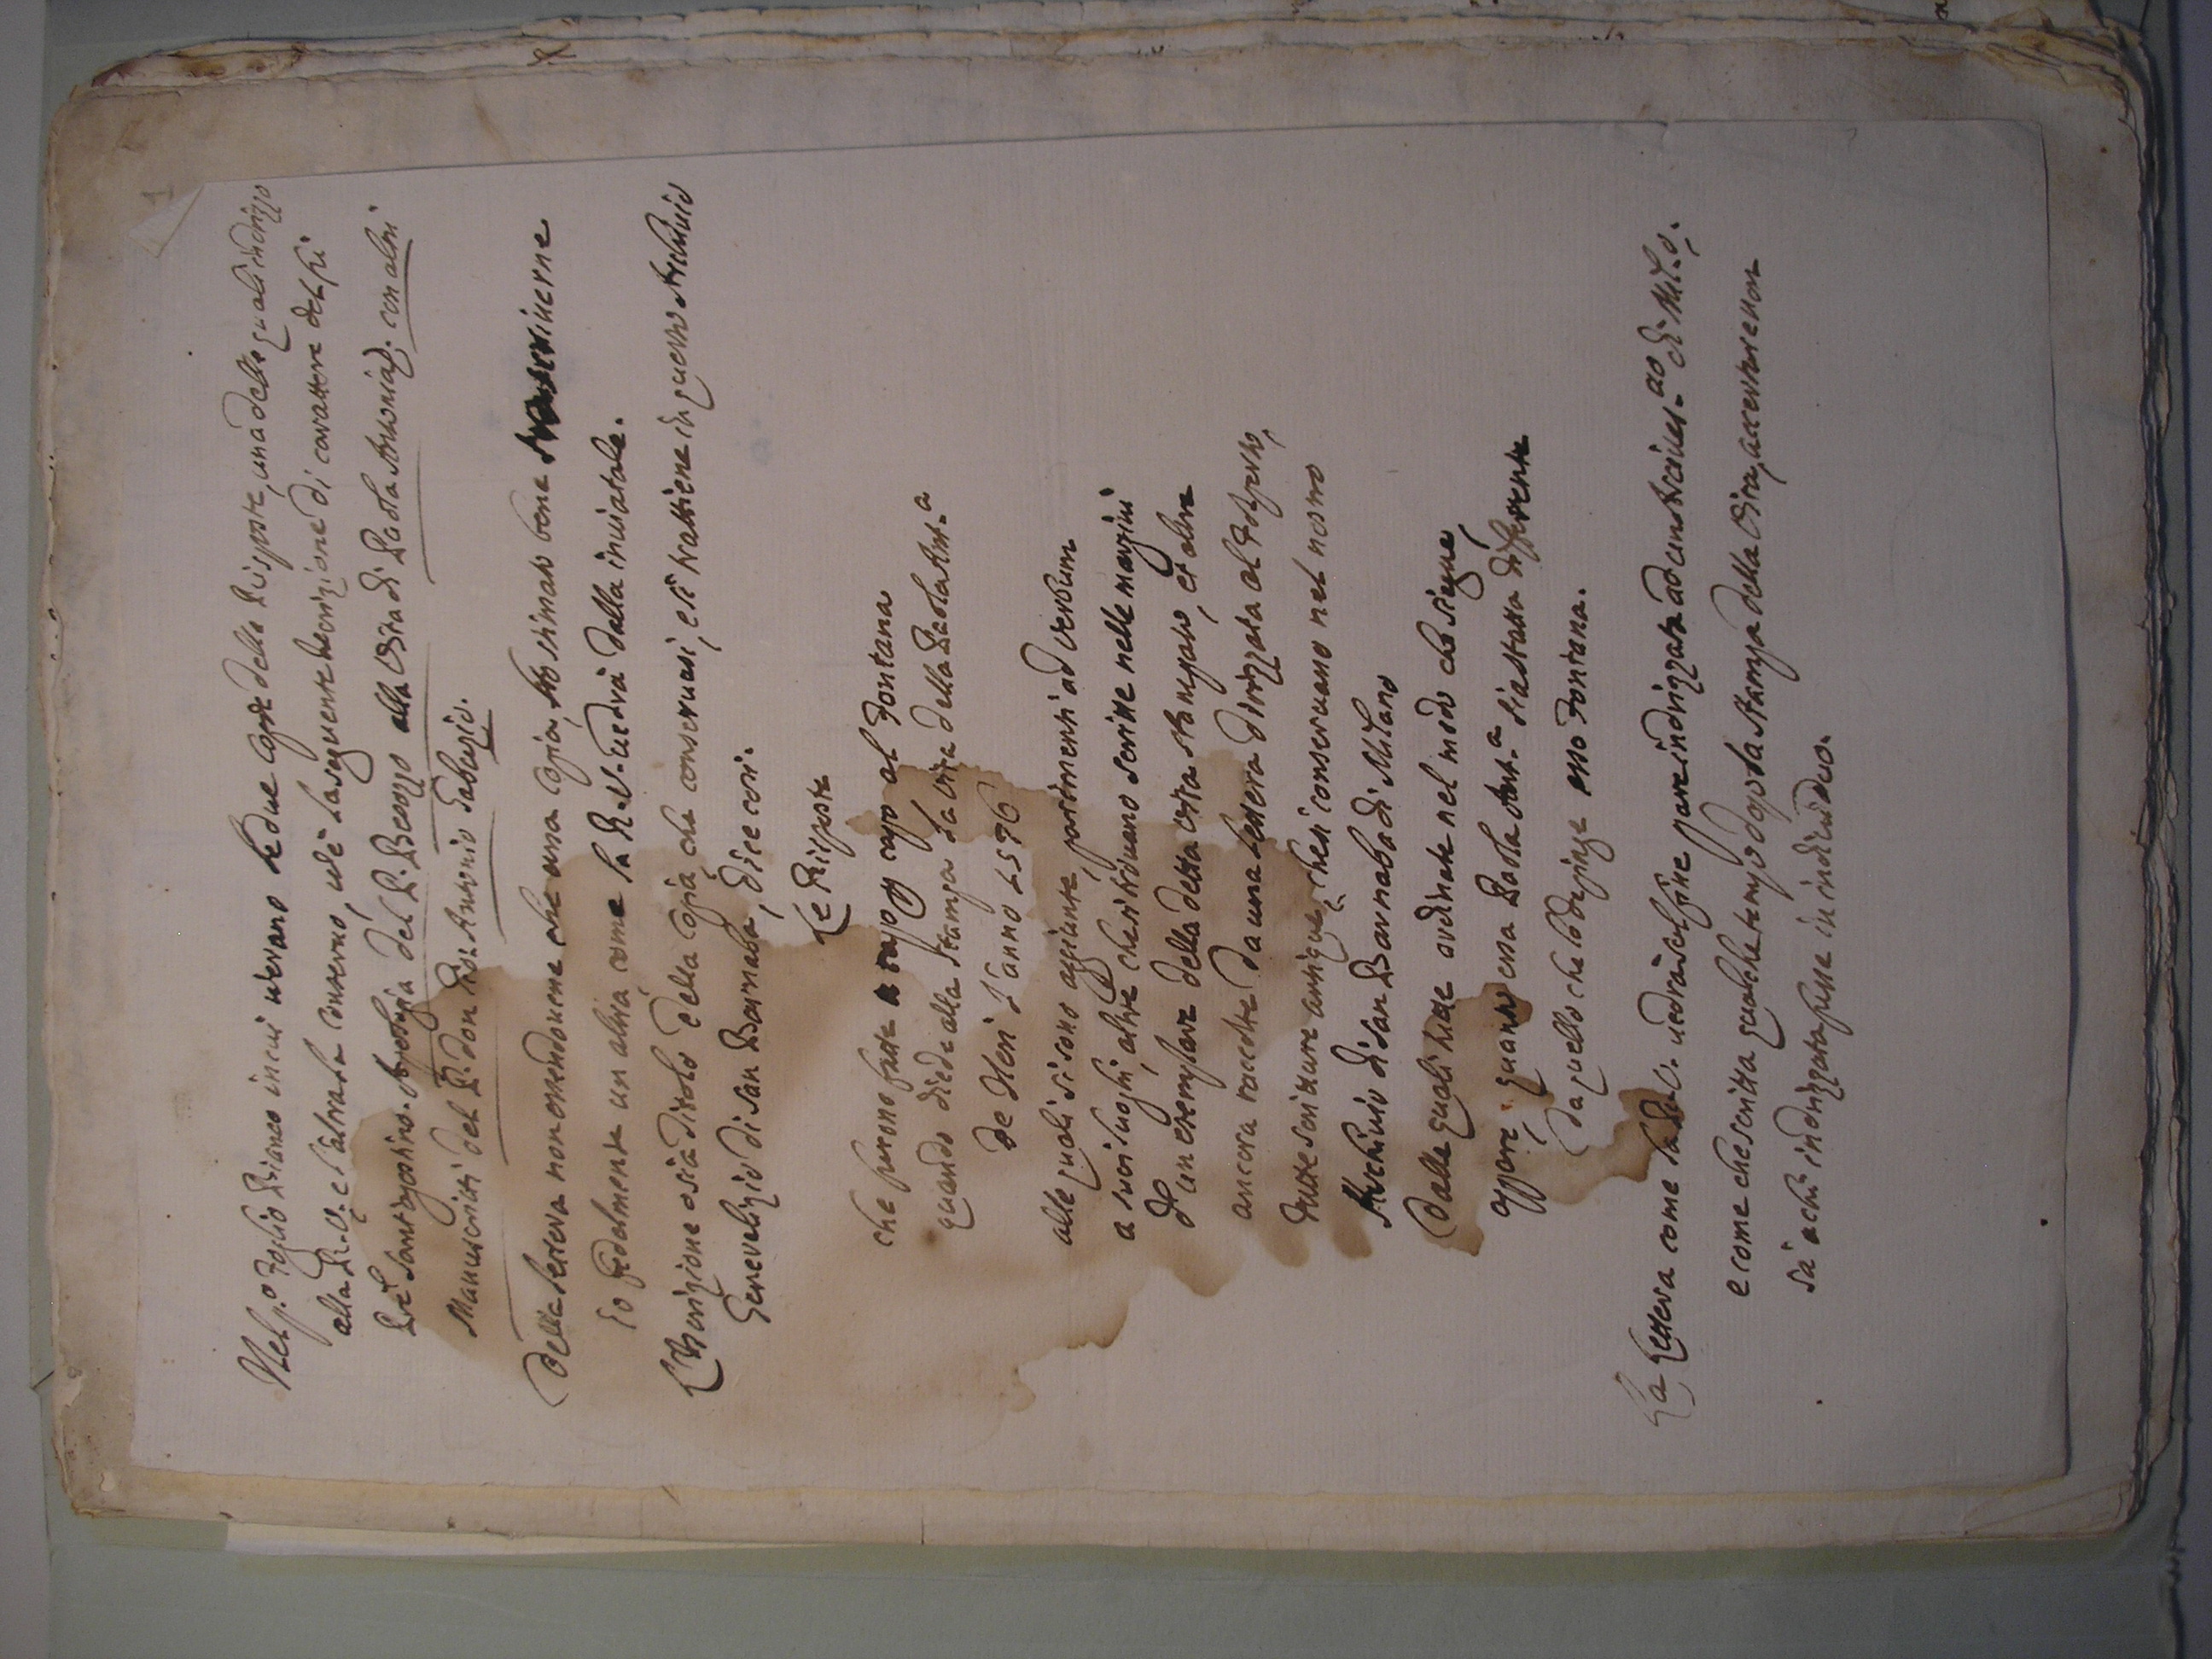 1
Nel p.o Foglio bianco in cui v'erano le due copie delle Risposte, una delle quali indrizzo
alla R. V. e l'altra la conservo, v'è la seguente Iscrizione di carattere del fù
Prē Sant'Agostino. Apologia del P. Besozzo alla Vita di Paola Antonia, con altri
Manuscritti del P. don Gio: Antonio Gabuzio.
Della lettera non avendovene che una copia, hò stimato bene transcriverne
io fedelmente un altra, come la R. V. vedrà dalla inviatale.
L'Iscrizione osia Titolo della Copia che conservasi, e si trattiene in questo Archivio
Generalizio di San Barnaba, dice cosi.
Le Risposte
che furono fatte a capo per capo al Fontana
quando diede alla Stampa la vita della Paola Ant.a
de Neri l'anno 1576
alle quali si sono aggiunte parimenti ad verbum
a suoi luoghi, altre che si trovano scritte nelle margini
d'un esemplare della detta vita stampato, et altre
ancora raccolte da una lettera dirizzata al Proposto,
tutte scritture antique, che si conservano nel nostro
Archivio di San Barnaba di Milano
Dalle quali tutte ordinate nel modo che siegue,
appare, quanto essa Paola Ant.a sia stata differente
da quello che lo depinge esso Fontana.
La Lettera come la R. V. vedrà sul fine pare indrizzata ad un Arcives.ao di Mil.o,
e come che scritta qualche tempo dopo la stampa della Vita, accertare non
sà a chi indrizzata fusse in individuo.